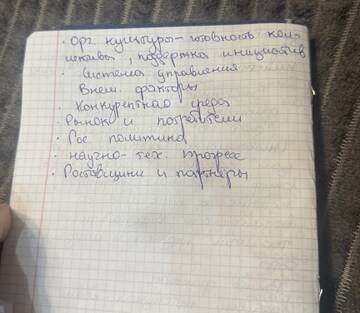 · Орг. культуры - готовность кол-
лектива, поддержка инициатив
· Система управления
Внеш. факторы
· Конкурентная среда
· Рынок и потребители
· Гос политика
· научно-тех. прогресс
· Поставщики и партнеры